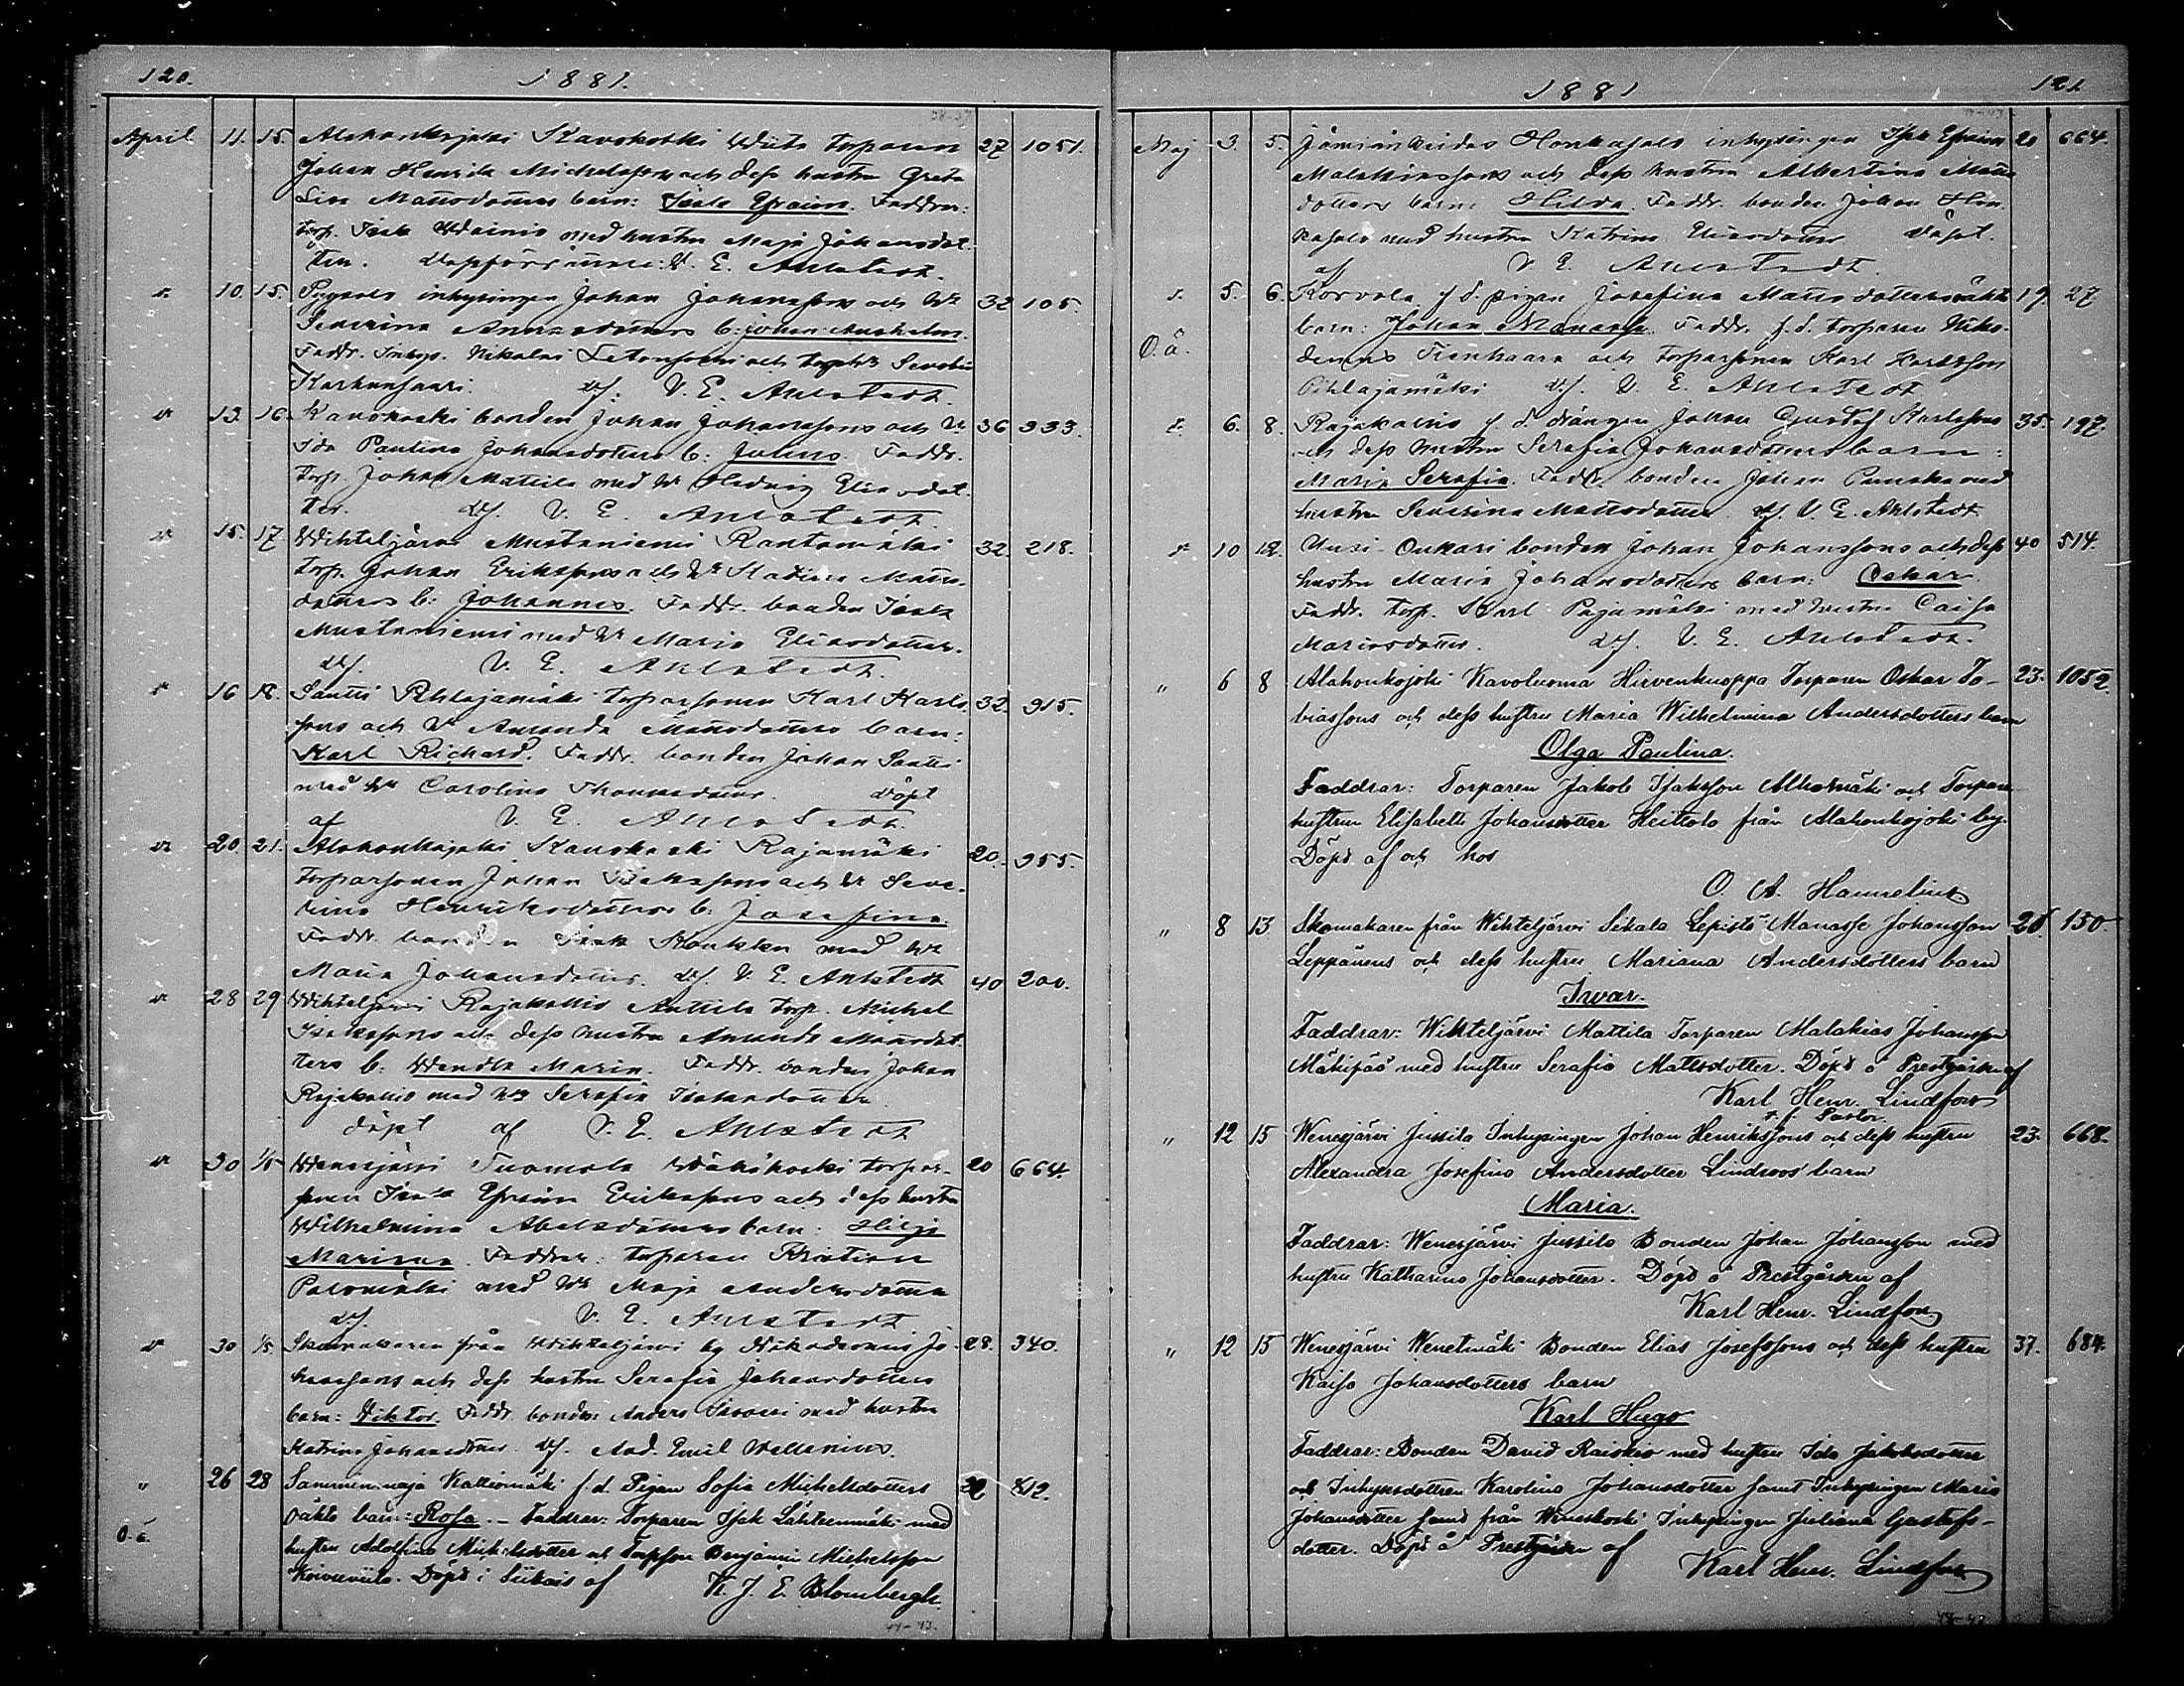 120.
1881.
April 11. 15. Alahonkajoki Kavokoski Wiita torparen 27 1051.
Johan Henrik Michelssons och dess hustru Greta
Lisa Mattsdotters barn: Isak Efraim. Faddrar:
torp. Isak Wainio med hustru Maja Johansdot-
ter. Dopförrättare: V. E. Ahlstedt.
10. 15. inhysingen Johan Johanssons och h. 32 105.
Severina b: Johan
Faddr. Inhys. Nikolai och
Karhunsaari. df. V. E. Ahlstedt.
13. 16. Kavokoski bonden Johan Johanssons och h. 36 933.
Ida Paulina Johansdotters b: Julius. Faddr.
torp. Johan Mattila med h. Hedvig Eliasdot-
ter. df. V. E. Ahlstedt.
15. 17. Wihteljärvi Mustaniemi Rantamäki 32. 218.
torp. Johan Erikssons och h. Matts-
dotters b: Johannes. Faddr. bonden Isak
Mustaniemi med h. Maria Eliasdotter.
df. V. E. Ahlstedt.
16 18. Santti Pihlajamäki torparsonen Karl Karls- 32. 915.
sons och h. Amanda Mattsdotters barn:
Karl Richard. Faddr. bonden Johan Santti
med h. Carolina Thomasdotter. döpt
af V. E. Ahlstedt.
20. 21. Alahonkajoki Kavokoski Rajamäki 20. 955.
torparsonen Johan Isakssons och h. Seve-
rina Henriksdotters b: Josefina.
Faddr. bonden Isak med h.
Maria Johansdotter. df. V. E. Ahlstedt
28 29 Wihteljärvi Rajakallio Anttila torp. Michel 40 200.
Isakssons och dess hustru Amanda Mattsdot-
ters b: Wendla Maria. Faddr. bonden Johan
Rajakallio med h. Serafia Isaksdotter
döpt af V. E. Ahlstedt
30 1/5 Wenesjärvi Tuomola Wähäkoski torpar- 20 664.
sonen Isak Efraim Erikssons och dess hustru
Wilhelmina Abelsdotters barn: Hilja
Mariana. Faddrar: torparen Kristian
Palomäki med h. Maja Andersdotter
df. V. E. Ahlstedt.
30 1/5. Skomakaren från Wihteljärvi by Nikodemus Jo- 28. 340.
hanssons och dess hustru Serafia Johansdotters
barn: Viktor. Faddr. bonden Anders med hustru
Katrina Johansdotter. df. And. Emil Wellenius.
" 26 28 Sammin maja Kattiomäki f.d. Pigan Sofia Michelsdotters 22 812.
O.ä. oäkta barn: Rosa. – Faddrar: Torparen Isak Lähteenmäki med
hustru Adolfina Michelsdotter och Torpson Benjamin Michelsson
Koivuviita. Döpt i Siikais af K. J. E. Blombergh.
44-43.
1881
121
Maj 3. 5. Jämiänkeidas Honkasalo inhysingen Isak Efraim 20 664.
Malakiassons och dess hustru Albertina Matts-
dotters barn: Hilda. Faddr. bonden Johan Hon-
kasalo med hustru Katrina Eliasdotter döpt
af V. E. Ahlstedt.
5. 6. Korvola f.d. pigan Josefina Mattsdotters oäkta 19. 27
O.ä. barn: Johan Manasse. Faddr. f.d. torparen Niko-
demus Tienhaara och torparsonen Karl Karlsson
Pihlajamäki df. V. E. Ahlstedt
6. 8. Rajakallio f.d. drängen Johan Gustaf Karlssons 35. 197.
och dess hustru Serafia Johansdotters barn:
Maria Serafia. Faddr. bonden Johan med
hustru Severina Mattsdotter. df. V. E. Ahlstedt
10 12. Uusi-Onkari bonden Johan Johanssons och dess 40 514.
hustru Maria Johansdotters barn: Oskar.
Faddr. torp. Karl Pajamäki med hustru Caisa
Mariasdotter. df. V. E. Ahlstedt.
" 6 8 Alahonkojoki Kavoluoma Hirvenkuoppa Torparen Oskar To- 23. 1052.
biassons och dess hustru Maria Wilhelmina Andersdotters barn
Olga Paulina.
Faddrar: Torparen Jakob Isaksson Alhomäki och Torpare-
hustrun Elisabeth Johansdotter Heittola från Alahonkojoki by.
Döpt af och hos
O. A. Hannelius
" 8 13 Skomakaren från Wihteljärvi Sikala Lepistö Manasse Johansson 28. 150
Leppänens och dess hustru Mariana Andersdotters barn
Iwar.
Faddrar: Wihteljärvi Mattila Torparen Malakias Johansson
Mäkipää med hustru Serafia Mattsdotter. Döpt å Prestgården af
Karl Henr. Lindfors
t. f. Pastor.
" 12 15 Wenesjärvi Jussila Inhysingen Johan Henrikssons och dess hustru 23. 668.
Alexandra Josefina Andersdotter Lindroos' barn
Maria.
Faddrar: Wenesjärvi Jussila Bonden Johan Johansson med
hustru Katharina Johansdotter. Döpt å Prestgården af
Karl Henr. Lindfors
" 12 15 Wenesjärvi Wenetmäki Bonden Elias Josefssons och dess hustru 37. 684.
Kaisa Johansdotters barn
Karl Hugo
Faddrar: Bonden David Raiskio med hustru Ida Jakobsdotter
och Inhysesdottren Karolina Johansdotter samt Inhysingen Maria
Johansdotter samt från Weneskoski Inhysingen Juliana Gustafs-
dotter. Döpt å Prestgården af Karl Henr. Lindfors
44-43